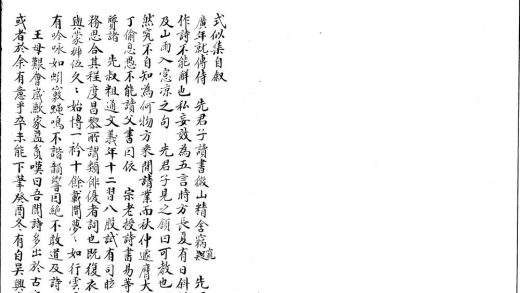 式似集自叙
年就傅侍 先君子讀書微山精舍竊 先
作詩不能辭也私妄效為五言時方長夏有日斜
及山雨入窓凉之句 先君子見之頷曰可教也
然究不自知為何物方乘間請業而秋仲遽膺大
丁偷息愚不能讀父書因依 宗老授詩書易等
諸 先叔祖通文義年十二習八股試有司
務思合其程度昌黎所謂類俳優者詞也既復衣
與蒙伍久〻始博一衿十餘載間夢〻如行雲
有吟咏如蚓竅蠅鳴不諧韻響因絕不敢道及詩
王母艱會歲歉家益貧嘆曰吾聞詩多出於古
或者於余有意乎卒未能下筆癸酉冬有自吳興